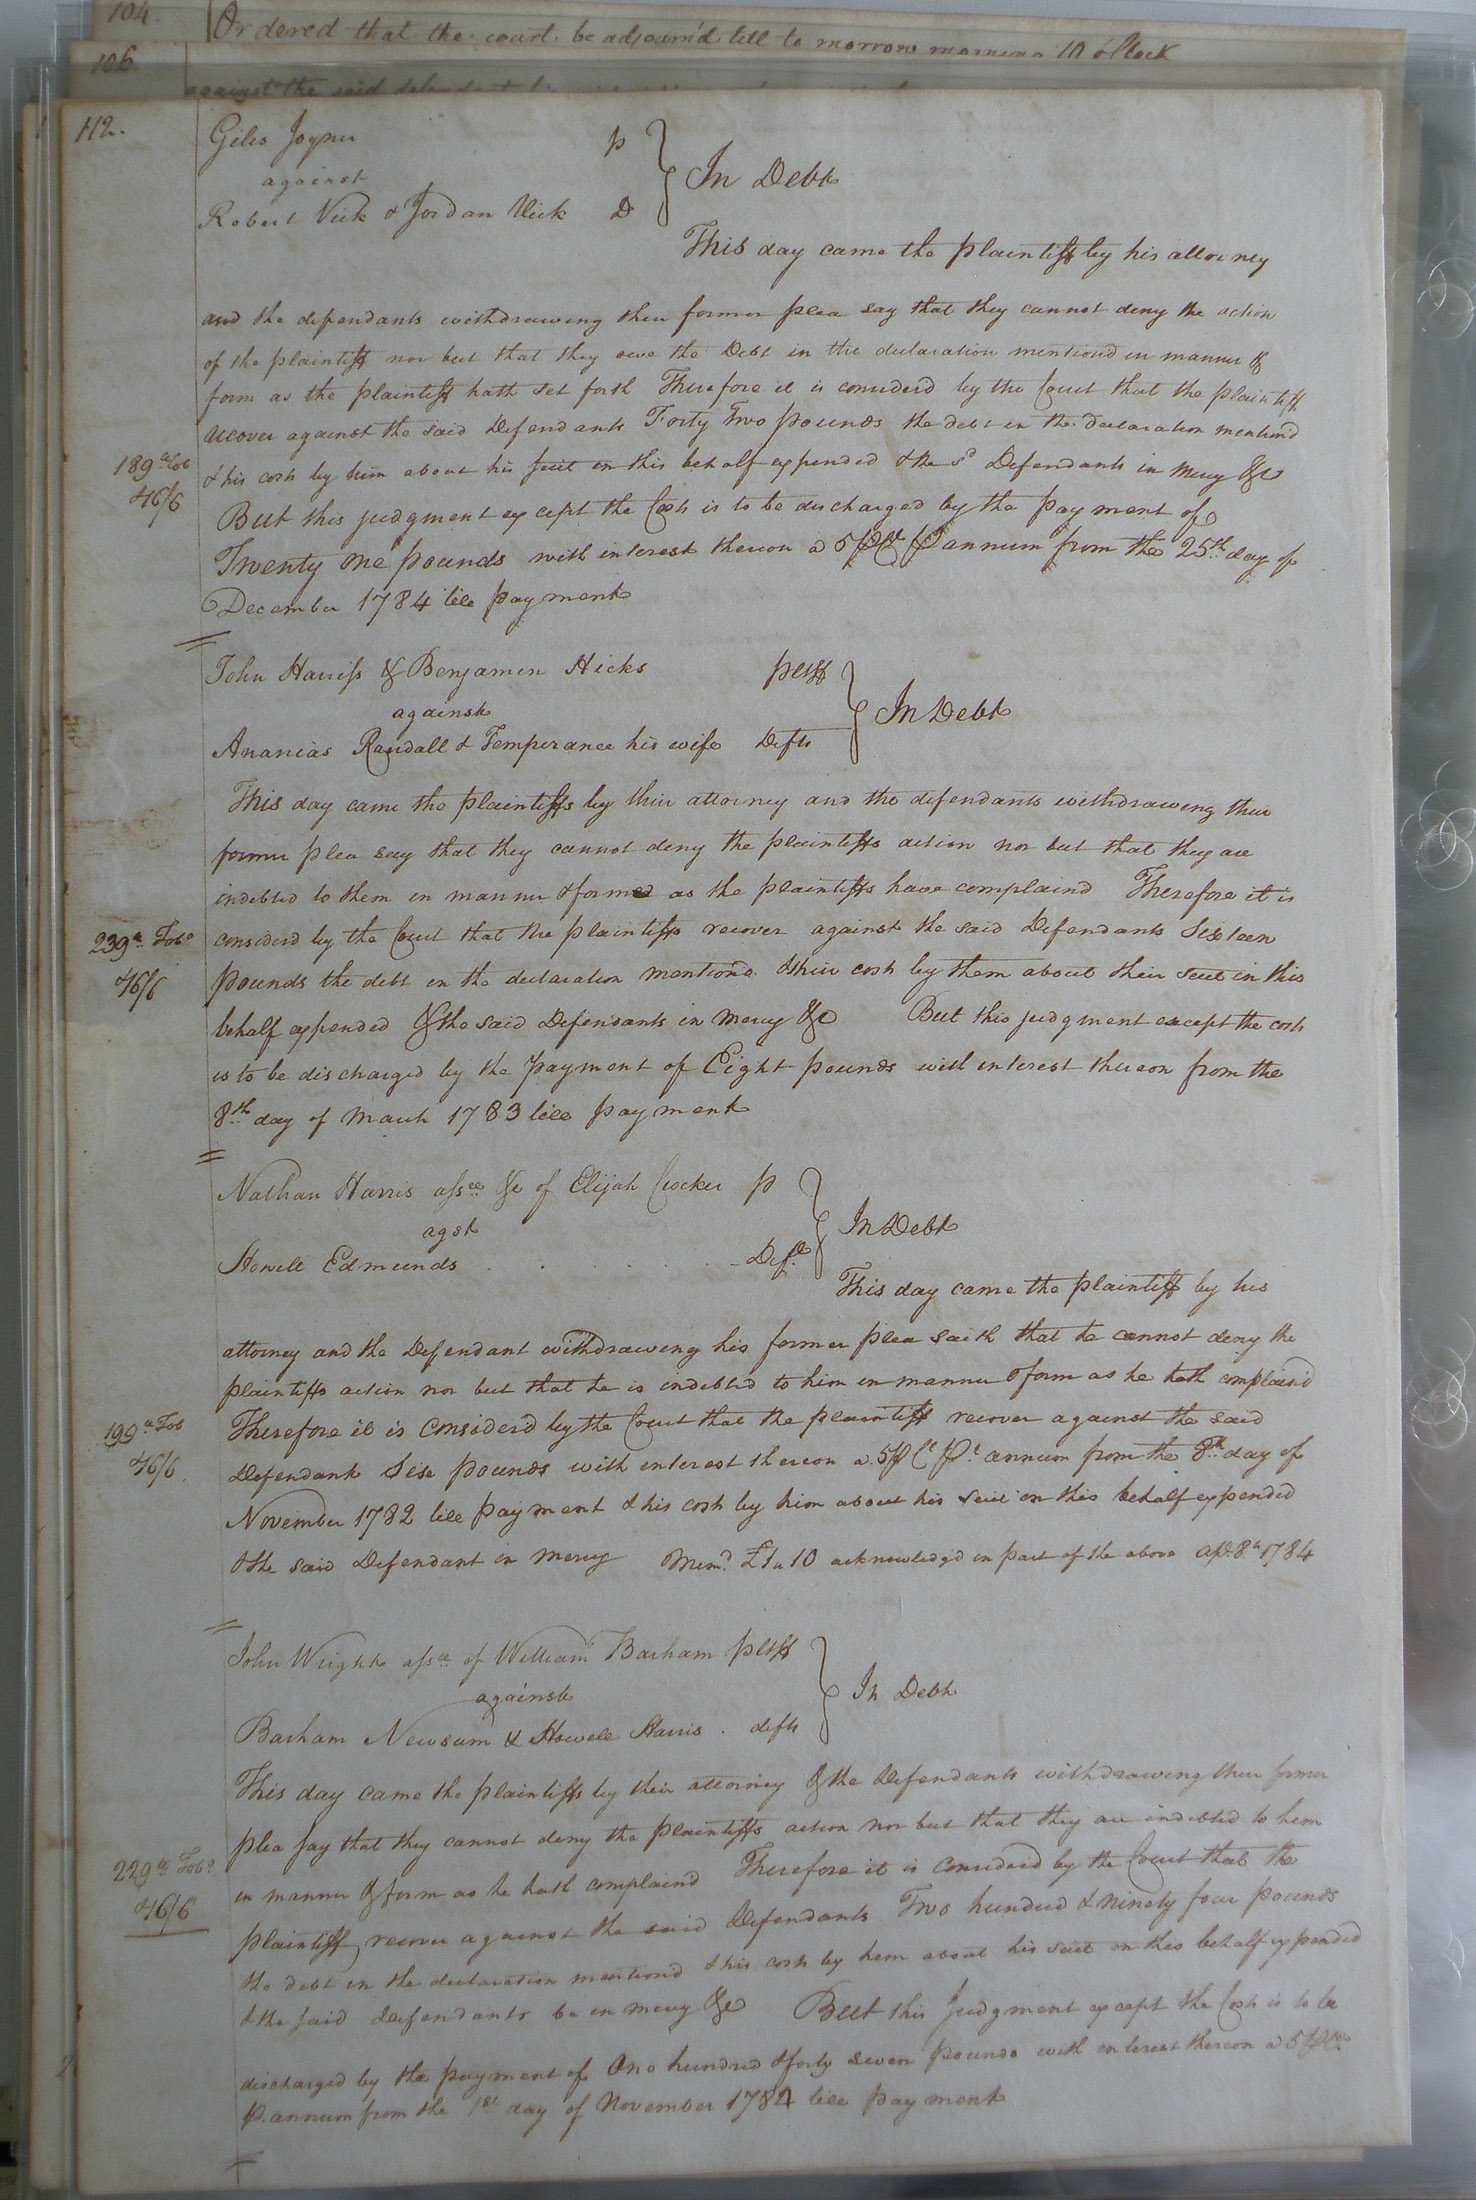 104.
Ordered that the court be adjourn'd till to morrow morning 10 oClock
106.
against the said defendant
112.
Giles Joyner p
against
Robert Vick & Jordan Vick D
In Debt
This day came the plaintiff by his attorney
and the defendants withdrawing their former plea say that they cannot deny the action
of the plaintiff nor but that they owe the Debt in the declaration mention'd in manner &
form as the plaintiff hath set forth Therefore it is consider'd by the Court that the plaintiff
recover against the said Defendants Forty Two pounds the debt in the declaration mention'd
189 Tob
& 6/6
& his costs by him about his suit in this behalf expended & the sd Defendants in mercy &c
But this judgment except the Costs is to be discharged by the payment of
Twenty One pounds with interest thereon a 5 p Ct p annum from the 25th day of
December 1784 till payment
John Harriss & Benjamin Hicks pltff
against
Ananias Randall & Temperance his wife Defts
In Debt
This day came the plaintiffs by their attorney and the defendants withdrawing their
former plea say that they cannot deny the plaintiffs action nor but that they are
indebted to them in manner & form as the plaintiffs have complaind Therefore it is
239 Tobo
& 6/6
considerd by the Court that the plaintiffs recover against the said Defendants Sixteen
pounds the debt in the declaration mention'd & their costs by them about their suit in this
behalf expended & the said Defendants in mercy &c But this judgment except the costs
is to be discharged by the payment of Eight pounds with interest thereon from the
8th day of March 1783 till payment
Nathan Harris assee &c of Elijah Crocker p
agst
Howell Edmunds Deft
In Debt
This day came the plaintiff by his
attorney and the Defendant withdrawing his former plea saith that he cannot deny the
plaintiffs action nor but that he is indebted to him in manner & form as he hath complain'd
199 Tob
& 6/6
Therefore it is Consider'd by the Court that the plaintiff recover against the said
Defendant Six pounds with interest thereon a 5 p Ct pr annum from the 8th day of
November 1782 till payment & his costs by him about his suit in this behalf expended
& the said Defendant in mercy Memd £1 " 10 acknowledg'd in part of the above apl 8th 1784
John Wright assee of William Barham pltff
against
Barham Newsum & Howell Harris . defts
In Debt
This day came the plaintiffs by their attorney & the Defendants withdrawing their former
plea say that they cannot deny the plaintiffs action nor but that they are indebted to him
229 Tobo
& 6/6
in manner & form as he hath complain'd Therefore it is Considerd by the Court that the
plaintiff recover against the said Defendants Two hundred & ninety four pounds
the debt in the declaration mention'd & his costs by him about his suit in this behalf expended
& the said Defendants be in mercy &c But this Judgment except the Costs is to be
discharged by the payment of One hundred & forty seven pounds with interest thereon a 5 p Ct
p annum from the 1st day of November 1784 till payment